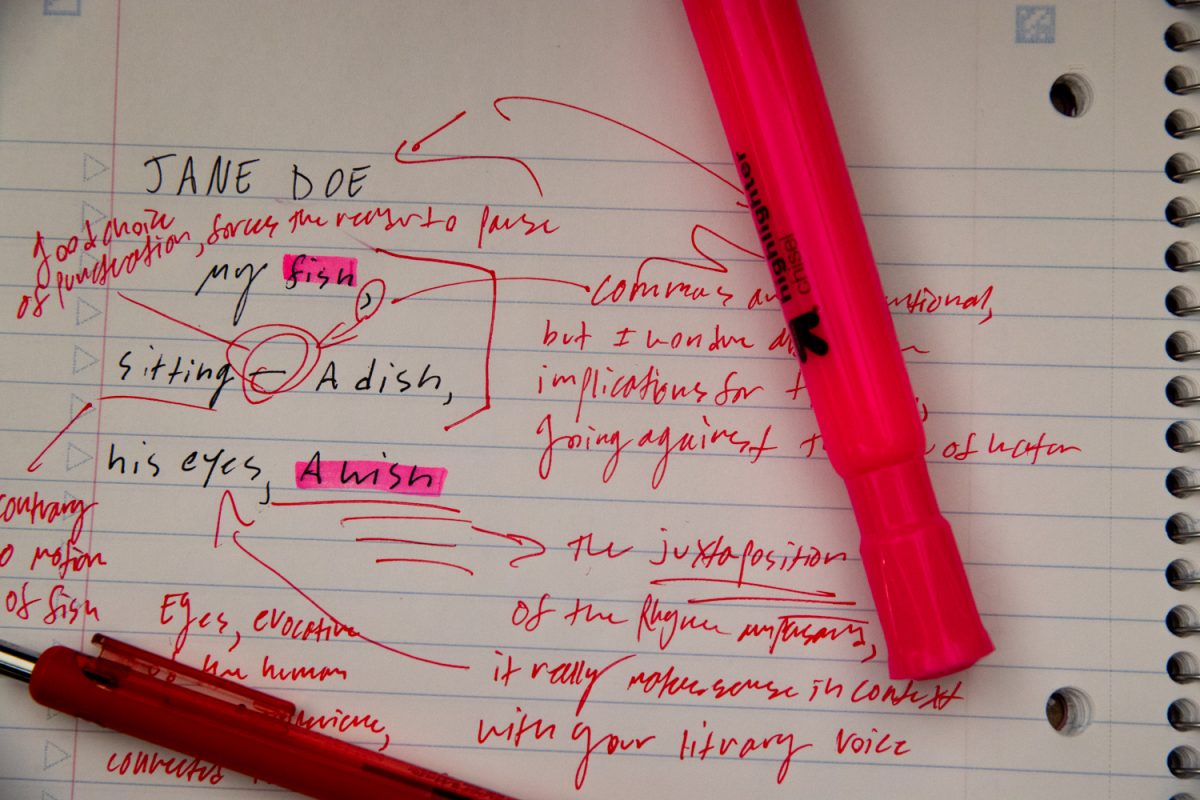 JANE DOE
good choice
of punctuation, forces the reader to pause
my fish,
sitting — A dish,
his eyes, A wish
commas
but I wonder
implications for
going against of water
contrary
motion
of fish
the juxtaposition
of the Rhyme
it really makes sense in context
with your literary voice
Eyes, evocative
human
connected
highlighter
chisel